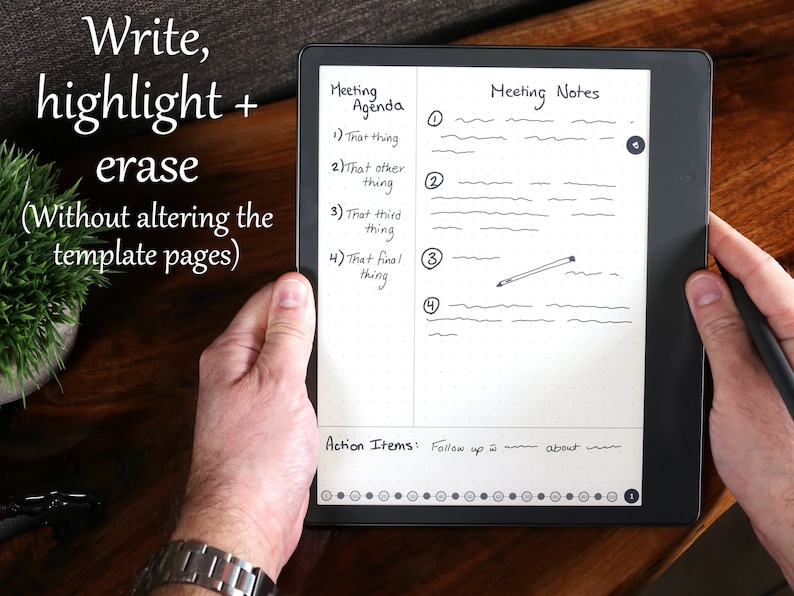 Write,
highlight +
erase
(Without altering the
template pages)
Meeting
Agenda
1) That thing
2) That other
thing
3) That third
thing
4) That final
thing
Meeting Notes
1
2
3
4
Action Items: Follow up w about
1 10 20 30 40 50 60 70 80 90 100 1